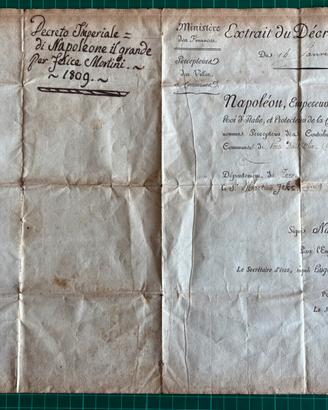 Decreto Imperiale =
di Napoleone il grande
per Felice Mortini. ~
~ 1809. ~
Ministère
des Finances.
Percepteurs
des Villes
et Communes
Extrait du Décr
Du 16
Napoléon, Empereur
Roi d'Italie, et Protecteur de la C
nommés Percepteurs des Contribu
Communes de
Département de
le S.r
Signé Na
Par l'Em
Le Secrétaire d'état, signé Hug
Po
Le